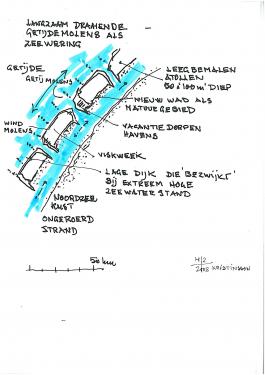 LANGZAAM DRAAIENDE
GETIJDEMOLENS ALS
ZEEWERING
GETIJDE
GETIJMOLENS
LEEGBEMALEN
ATOLLEN
50 à 100 m DIEP
NIEUW WAD ALS
NATUURGEBIED
WIND
MOLENS
VACANTIE DORPEN
HAVENS
VISKWEEK
LAGE DIJK DIE 'BEZWIJKT'
BIJ EXTREEM HOGE
ZEEWATERSTAND
NOORDZEE
KUST
ONGEROERD
STRAND
50 km